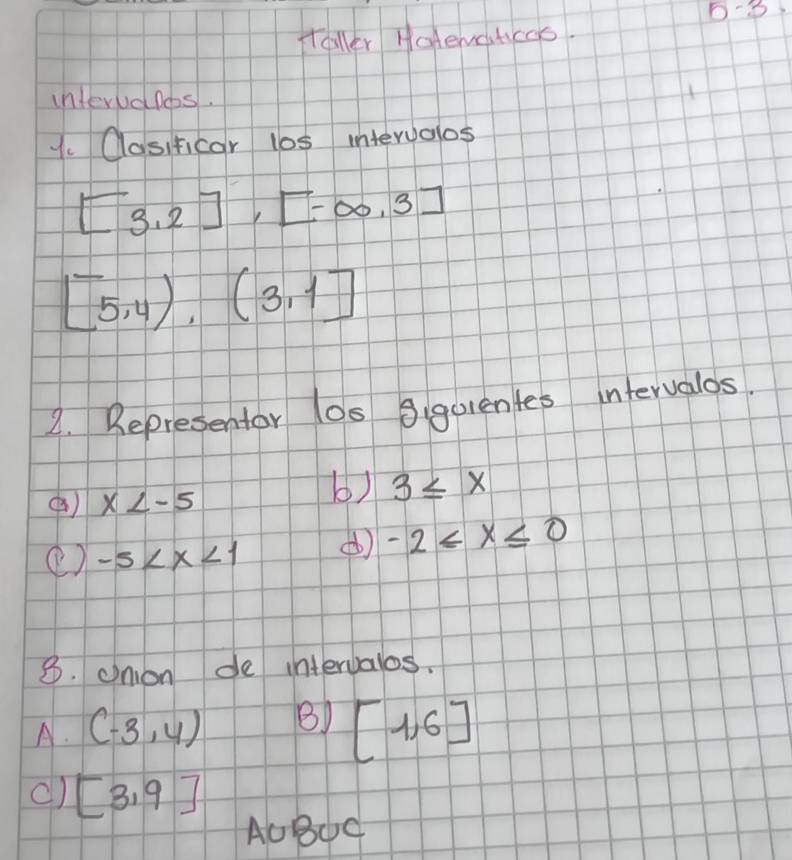 5-3.
Taller Matematicas.
intervalos.
1. Clasificar los intervalos
[3,2], [-∞,3]
[5,4), (3,1]
2. Representar los siguientes intervalos.
a) x < -5 b) 3 ≤ x
c) -5 < x < 1 d) -2 ≤ x ≤ 0
3. Union de intervalos.
A. (-3,4) B) [1,6]
C) [3,9]
AUBUC